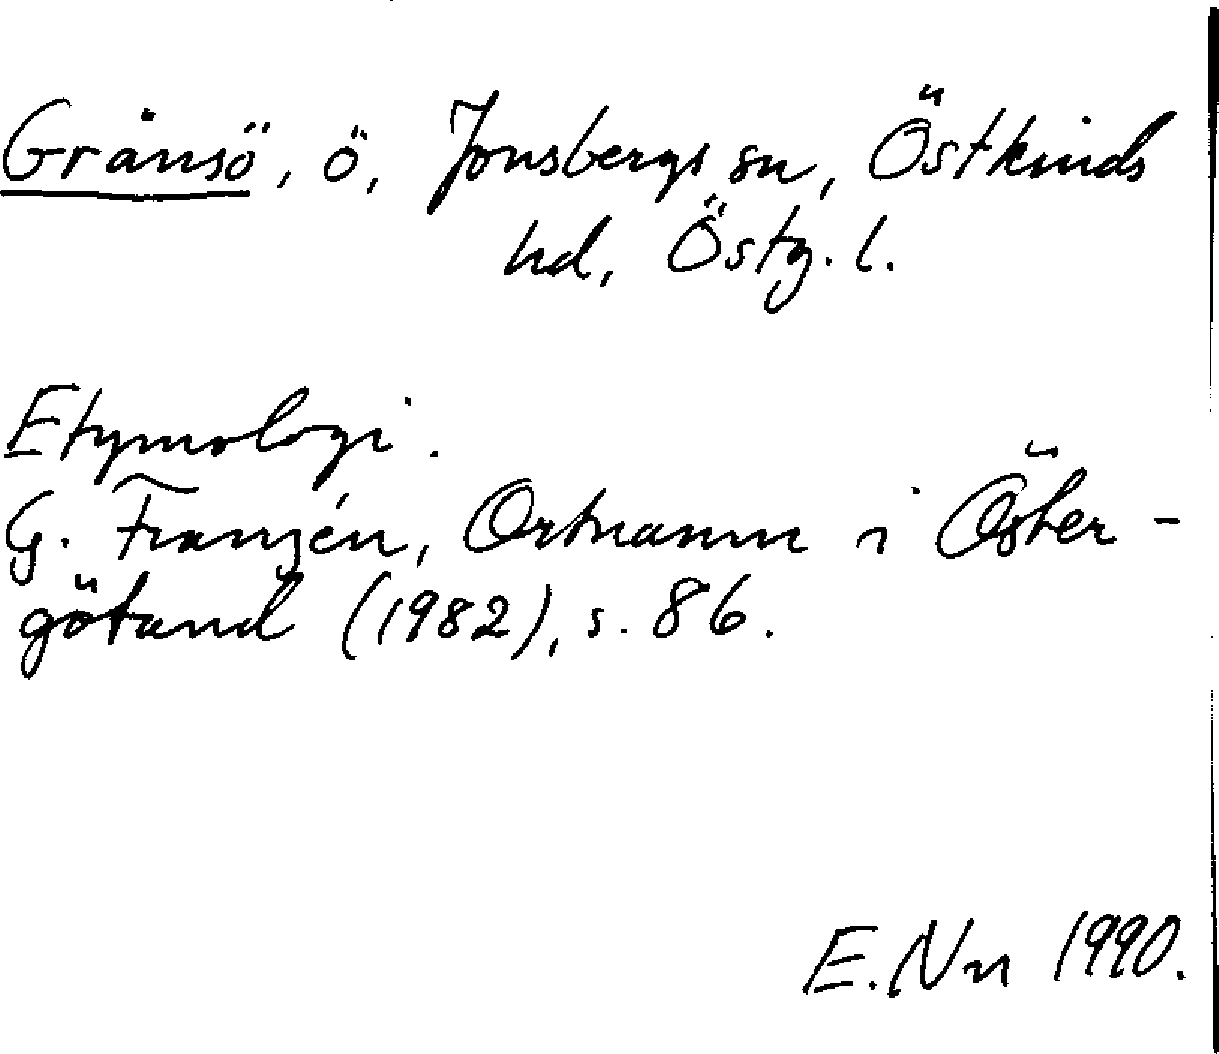 Gränsö, ö, Jonsbergs sn, Östkinds
hd, Östg. l.
Etymologi.
G. Franzén, Ortnamn i Öster-
götand (1982), s. 86.
E. Nn 1990.